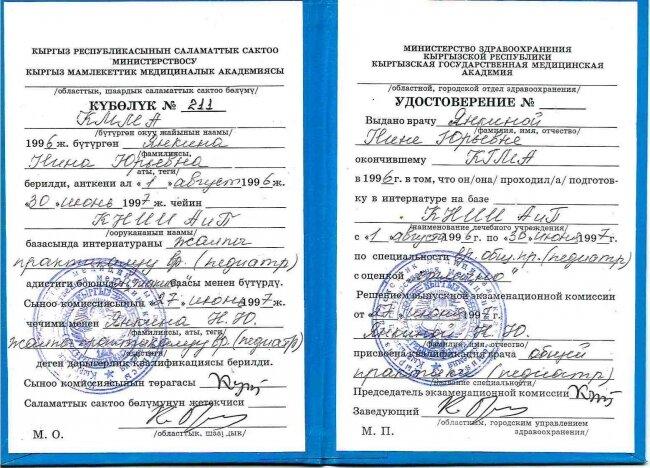 КЫРГЫЗ РЕСПУБЛИКАСЫНЫН САЛАМАТТЫК САКТОО
МИНИСТЕРСТВОСУ
КЫРГЫЗ МАМЛЕКЕТТИК МЕДИЦИНАЛЫК АКАДЕМИЯСЫ
/областтык, шаардык саламаттык сактоо бөлүмү/
КҮБӨЛҮК № 211
КММА
/бүтүргөн окуу жайынын наамы/
1996 ж. бүтүргөн Янкина
/фамилиясы,
Нина Юрьевна
аты, теги/
берилди, анткени ал "1" август 1996 ж.
"30" июнь 1997 ж. чейин
КНИИ АиП
/оорукананын наамы/
базасында интернатураны жалпы
практикалуу вр. (педиатр)
адистиги боюнча баасы менен бүтүрдү.
Сыноо комиссиясынын "27" июнь 1997 ж.
чечими менен Янкина Н.Ю.
/фамилиясы, аты, теги/
жалпы практикалуу вр. (педиатр)
деген дарыгерлик квалификациясы берилди.
Сыноо комиссиясынын төрагасы
Саламаттык сактоо бөлүмүнүн жетекчиси
М. О.
/областтык, шаардык/
МИНИСТЕРСТВО ЗДРАВООХРАНЕНИЯ
КЫРГЫЗСКОЙ РЕСПУБЛИКИ
КЫРГЫЗСКАЯ ГОСУДАРСТВЕННАЯ МЕДИЦИНСКАЯ
АКАДЕМИЯ
/областной, городской отдел здравоохранения/
УДОСТОВЕРЕНИЕ №
Выдано врачу Янкиной
/фамилия, имя, отчество/
Нине Юрьевне
окончившему КГМА
в 1996 г. в том, что он/она/ проходил/а/ подготов-
ку в интернатуре на базе
КНИИ АиП
/наименование лечебного учреждения/
с "1" августа 1996 г. по "30" июня 1997 г.
по специальности вр. общ. пр. (педиатр)
с оценкой "отлично"
Решением выпускной экзаменационной комиссии
от "27" июня 1997 г.
Янкиной Н. Ю.
/фамилия, имя, отчество/
присвоена квалификация врача общей
практики (педиатр)
/название специальности/
Председатель экзаменационной комиссии
Заведующий
/областным, городским управлением
здравоохранения/
М. П.